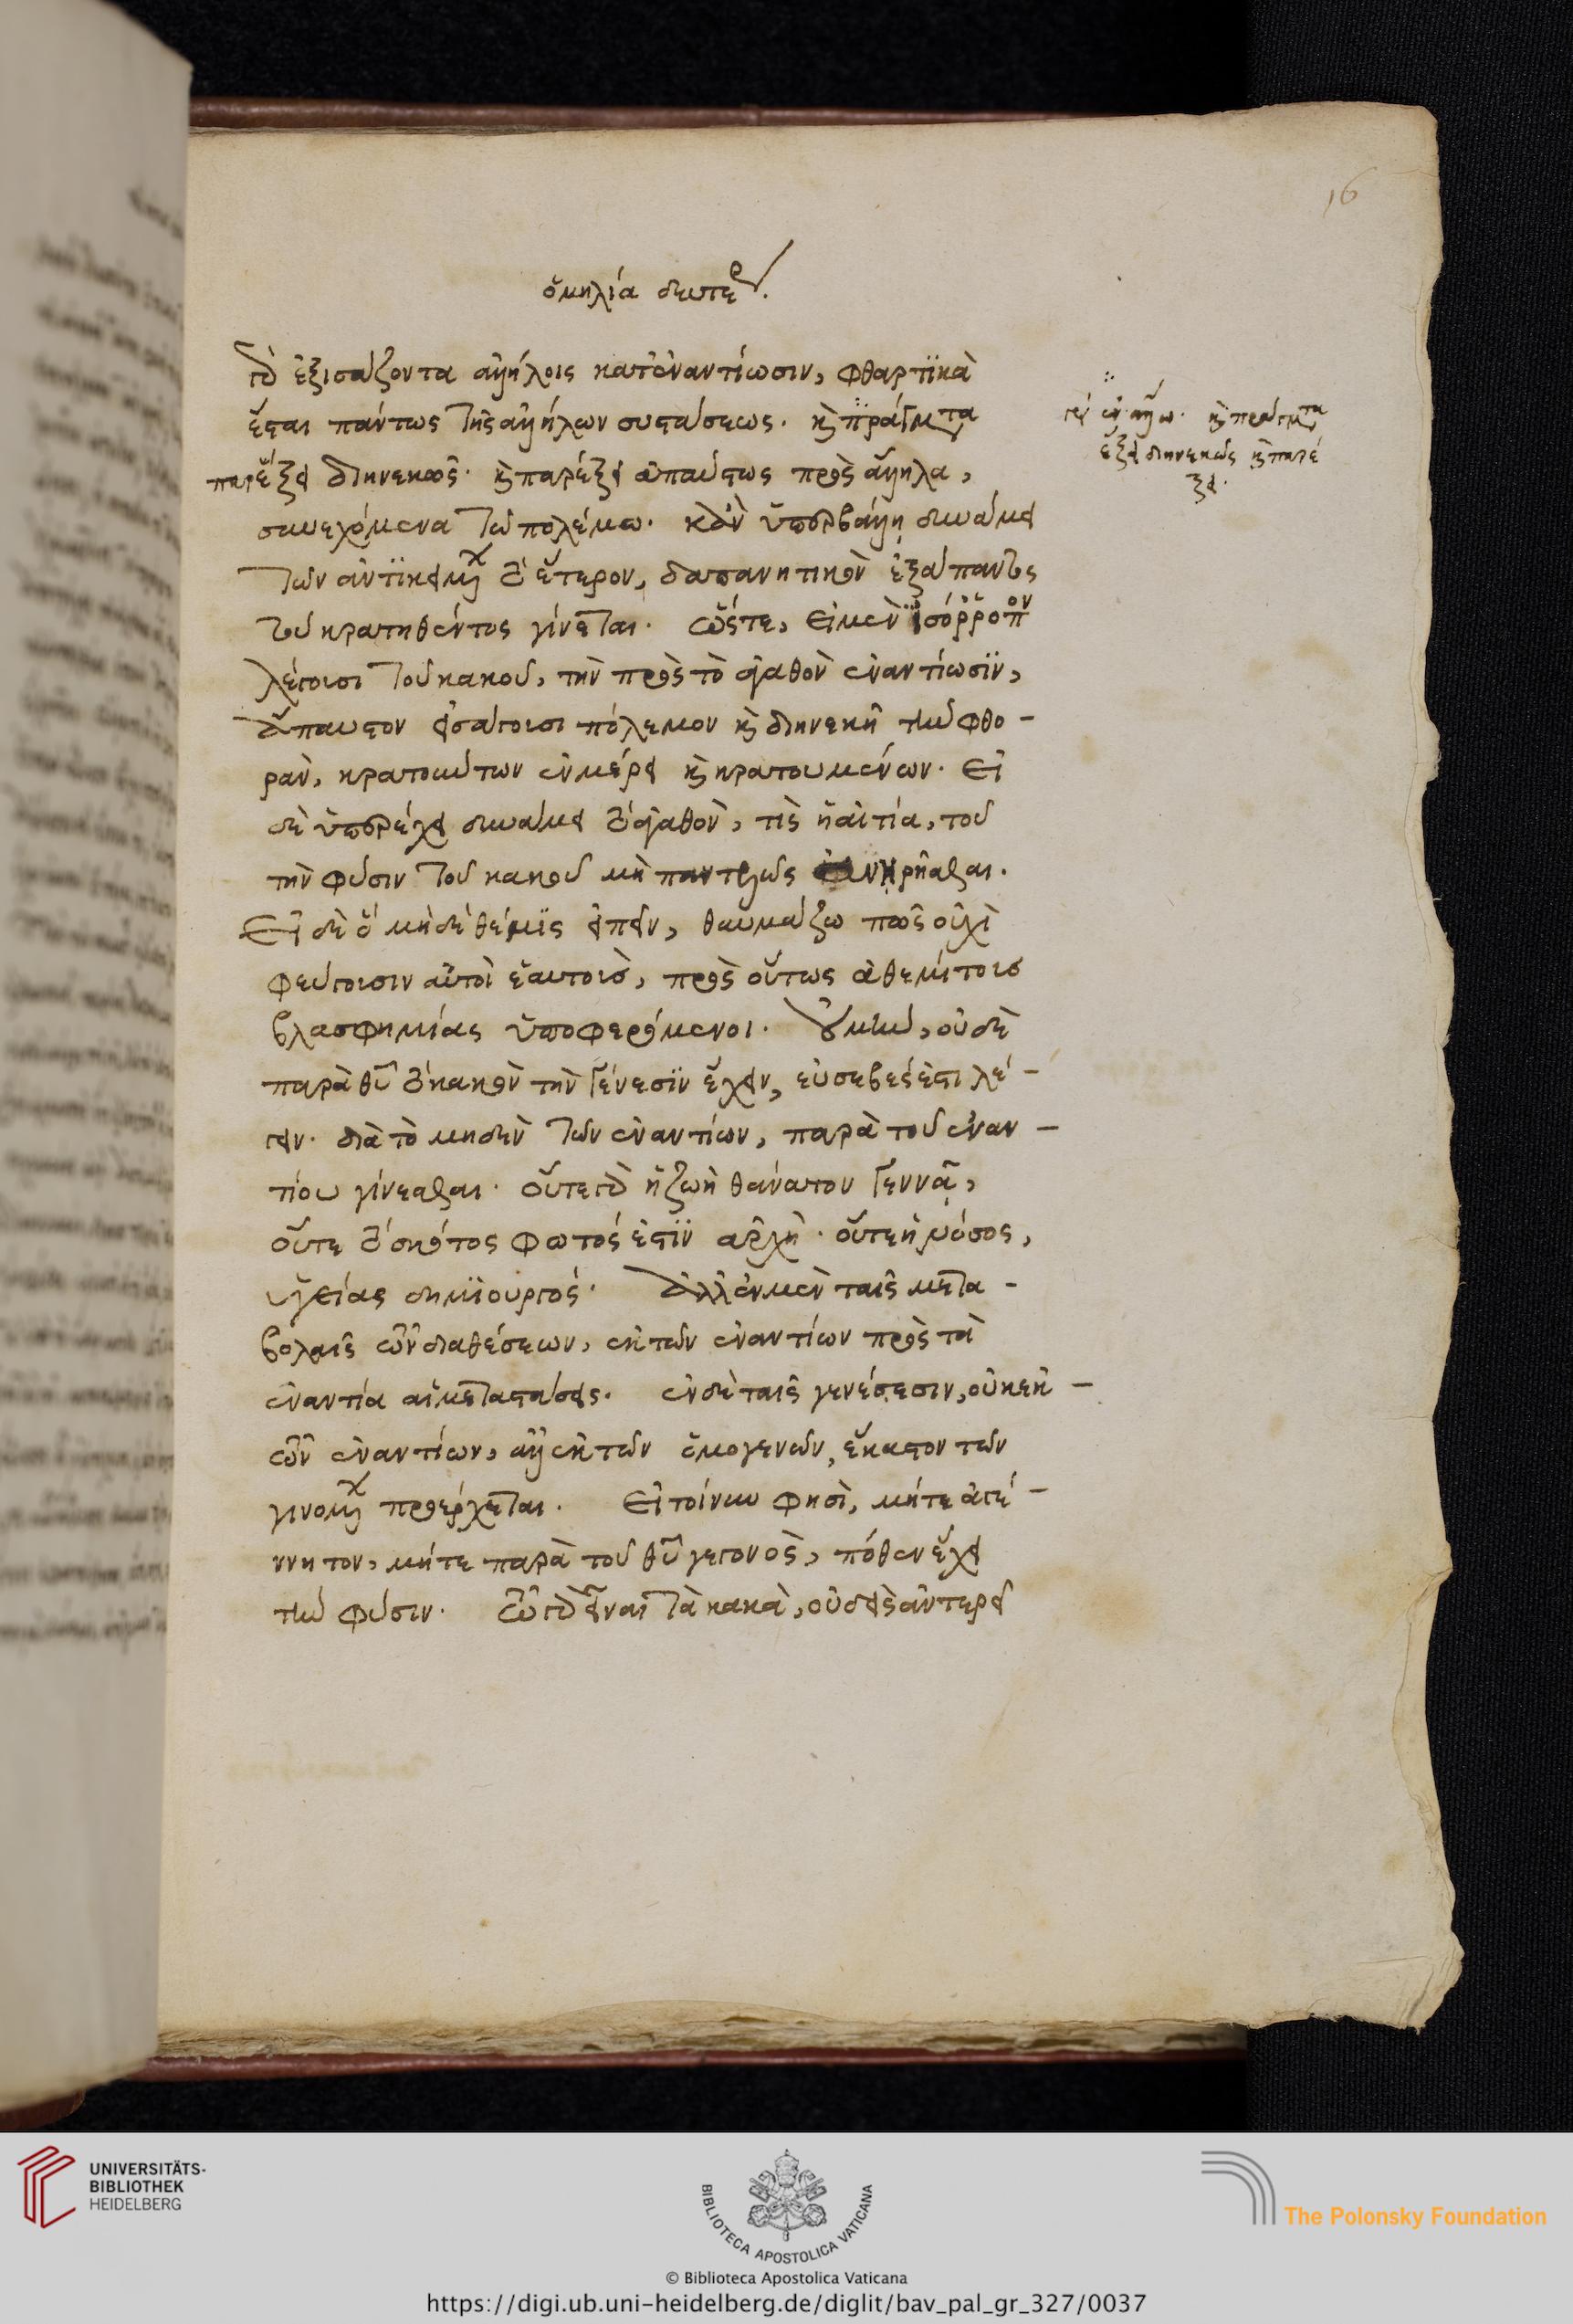 ὁμηλία δευτέρ.
γὰρ ἐξισάζοντα ἀλλήλοις κατ' ἐναντίωσιν, φθαρτϊκὰ
ἔσται πάντως τῆς ἀλλήλων συστάσεως. καὶ πράγματα
παρέξει διηνεκῶς. καὶ παρέξει ἀπαύστως πρὸς ἄλληλα,
συνεχόμενα τῶ πολέμω. κἂν ὑπερβάλλῃ δυνάμει
τῶν ἀντϊκειμένων τὸ ἕτερον, δαπανητικὸν ἐξάπαντος
τοῦ κρατηθέντος γίνεται. ὥστε, εἰ μὲν ἰσόρροπον
λέγουσι τοῦ κακοῦ, τὴν πρὸς τὸ ἀγαθὸν ἐναντίωσϊν,
ἄπαυστον εἰσάγουσι πόλεμον καὶ διηνεκῆ τὴν φθο-
ρὰν, κρατούντων ἐν μέρει καὶ κρατουμένων. Εἰ
δὲ ὑπερέχει δυνάμει τὸ ἀγαθὸν, τὶς ἡ αἰτία, τοῦ
τὴν φύσιν τοῦ κακοῦ μὴ παντελῶς ἀνῃρῆσθαι.
Εἰ δὲ ὃ μηδὲ θέμϊς εἰπεῖν, θαυμάζω πῶς οὐχὶ
φεύγουσιν αὐτοὶ ἑαυτοὺς, πρὸς οὕτως ἀθεμίτους
βλασφημίας ὑποφερόμενοι. Οὐ μὴν, οὐδὲ
παρὰ θῦ τὸ κακὸν τὴν γένεσϊν ἔχειν, εὐσεβές ἐστι λέ-
γειν. διὰ τὸ μηδὲν τῶν ἐναντίων, παρὰ τοῦ ἐναν-
τίου γίνεσθαι. οὔτε γὰρ ἡ ζωὴ θάνατον γεννᾷ,
οὔτε τὸ σκότος φωτός ἐστϊν ἀρχὴ. οὔτε ἡ νόσος,
ὑγείας δημϊουργός. Ἀλλ' ἐν μὲν ταῖς μετα-
βολαῖς τῶν διαθέσεων, ἐκ τῶν ἐναντίων πρὸς τὰ
ἐναντία αἱ μεταστάσεις. ἐν δὲ ταῖς γενέσεσιν, οὐκ ἐκ
τῶν ἐναντίων, ἀλλ' ἐκ τῶν ὁμογενῶν, ἕκαστον τῶν
γινομένων προέρχεται. Εἰ τοίνυν φησὶ, μήτε ἀγέ-
ννητον, μήτε παρὰ τοῦ θῦ γεγονὸς, πόθεν ἔχει
τὴν φύσιν. τὸ γὰρ εἶναι τὰ κακὰ, οὐδεὶς ἀντερεῖ
16
ἐν ἄλλω. καὶ πράγματα
ἕξει διηνεκῶς καὶ παρέ
ξει.
UNIVERSITÄTS-
BIBLIOTHEK
HEIDELBERG
BIBLIOTECA APOSTOLICA VATICANA
© Biblioteca Apostolica Vaticana
The Polonsky Foundation
https://digi.ub.uni-heidelberg.de/diglit/bav_pal_gr_327/0037